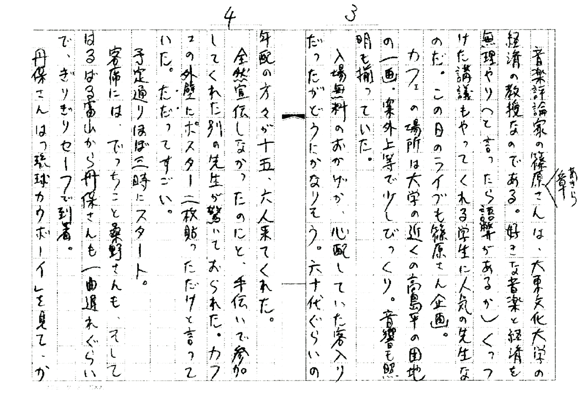 3
音楽評論家の篠原さんは、大東文化大学の
章
あきら
経済の教授なのである。好きな音楽と経済を
無理やり(と言ったら語弊があるか)くっつ
けた講議もやってくれる学生に人気の先生な
のだ。この日のライブも篠原さん企画。
カフェの場所は大学の近くの高島平の団地
の一画。案外上等で少しびっくり。音響も照
明も揃っていた。
入場無料のおかげか、心配していた客入り
だったがどうにかなりそう。六十代ぐらいの
4
年配の方々が十五、六人来てくれた。
全然宣伝しなかったのにと、手伝いで参加
してくれた別の先生が驚いておられた。カフ
ェの外壁にポスター二枚貼っただけと言って
いた。ただってすごい。
予定通りほぼ三時にスタート。
客席には、でっちこと桑野さんも、そして
はるばる富山から丹保さんも一曲遅れぐらい
で、ぎりぎりセーフで到着。
丹保さんはつ琉球カウボーイ」を見て、か